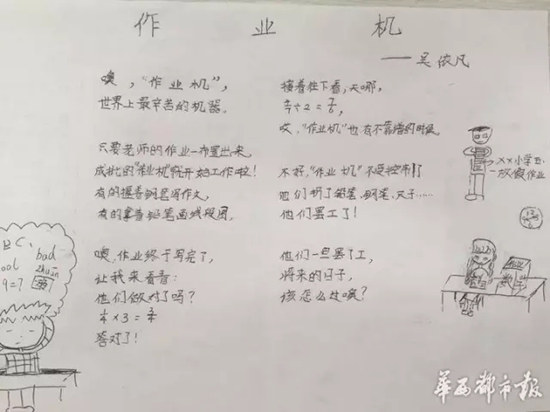 作业机
——吴依凡
噢，“作业机”，
世界上最辛苦的机器。
只要老师的作业一布置出来，
成批的“作业机”就开始工作啦！
有的握着钢笔写作文，
有的拿着铅笔画线段图。
噢，作业终于写完了，
让我来看看：
他们做对了吗？
1/4×3=3/4
答对了！
接着往下看，天哪，
÷2=
哎，“作业机”也有不靠谱的时候
不好，“作业机”不受控制了
他们折了铅笔、钢笔、尺子……
他们罢工了！
他们一旦罢了工，
将来的日子，
该怎么过噢？
××小学五.一
放假作业
BC,
bad
ool
zhuān
9=?
数学
华西都市报